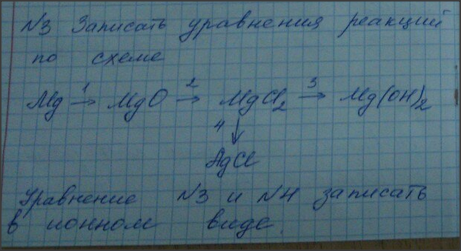 №3 Записать уравнения реакций
по схеме
Mg 1→ MgO 2→ MgCl₂ 3→ Mg(OH)₂
4↓
AgCl
Уравнение №3 и №4 записать
в ионном виде.